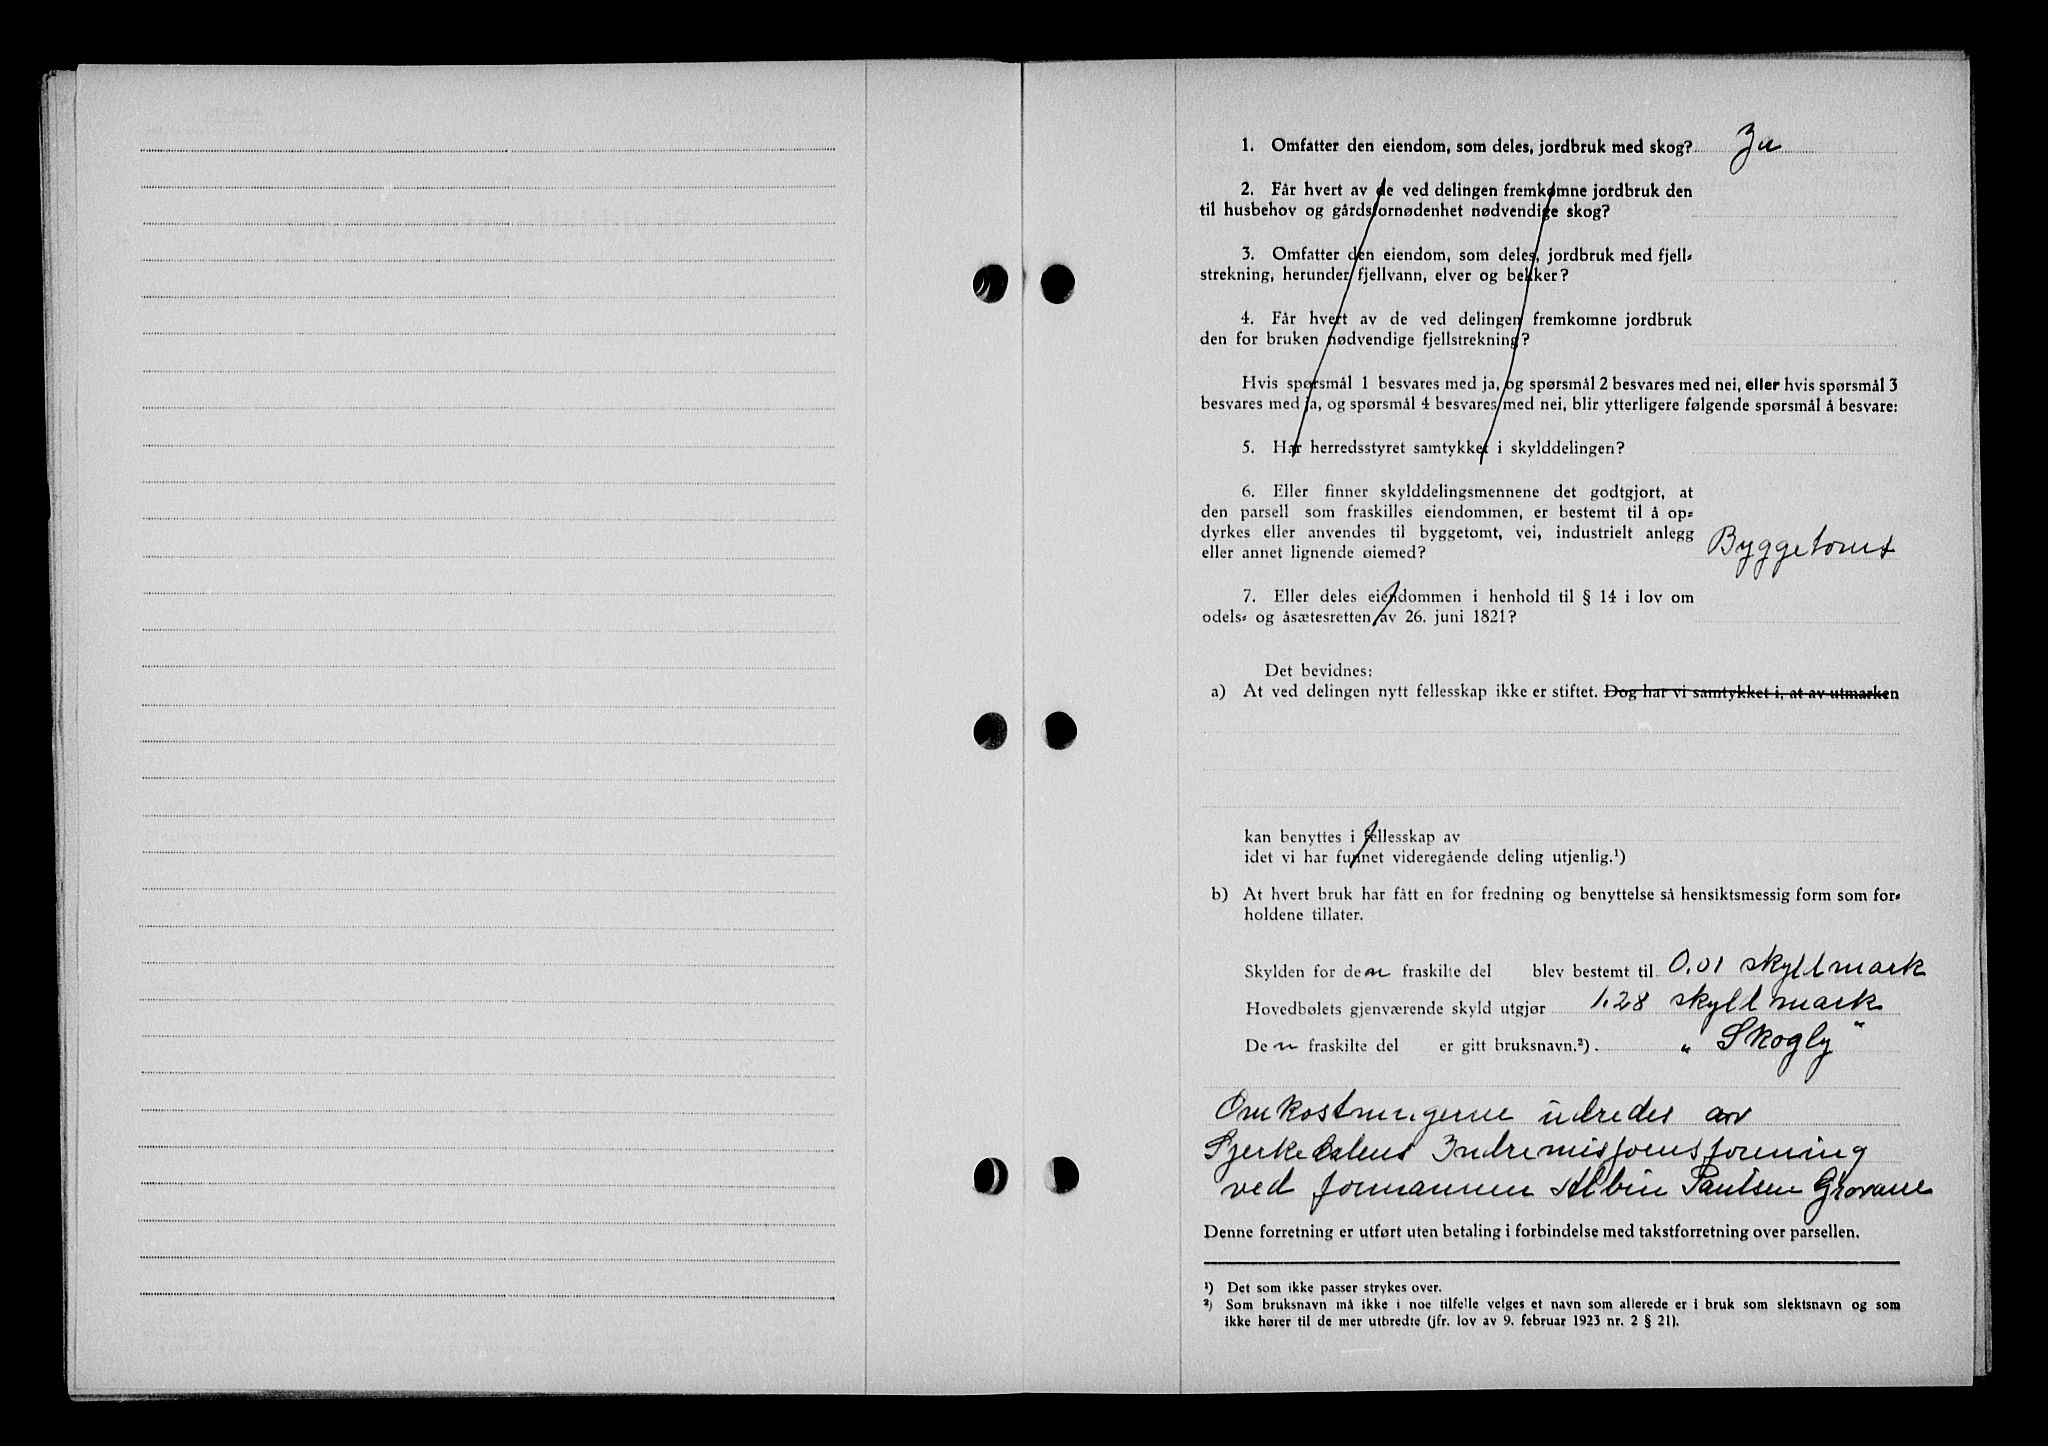 1. Omfatter den eiendom, som deles, jordbruk med skog? Ja
2. Får hvert av de ved delingen fremkomne jordbruk den
til husbehov og gårdsfornødenhet nødvendige skog?
3. Omfatter den eiendom, som deles, jordbruk med fjell-
strekning, herunder fjellvann, elver og bekker?
4. Får hvert av de ved delingen fremkomne jordbruk
den for bruken nødvendige fjellstrekning?
Hvis spørsmål 1 besvares med ja, og spørsmål 2 besvares med nei, eller hvis spørsmål 3
besvares med ja, og spørsmål 4 besvares med nei, blir ytterligere følgende spørsmål å besvare:
5. Har herredsstyret samtykket i skylddelingen?
6. Eller finner skylddelingsmennene det godtgjort, at
den parsell som fraskilles eiendommen, er bestemt til å op-
dyrkes eller anvendes til byggetomt, vei, industrielt anlegg
eller annet lignende øiemed? Byggetomt
7. Eller deles eiendommen i henhold til § 14 i lov om
odels- og åsætesretten av 26. juni 1821?
Det bevidnes:
a) At ved delingen nytt fellesskap ikke er stiftet. Dog har vi samtykket i, at av utmarken
kan benyttes i fellesskap av
idet vi har funnet videregående deling utjenlig.¹)
b) At hvert bruk har fått en for fredning og benyttelse så hensiktsmessig form som for-
holdene tillater.
Skylden for den fraskilte del blev bestemt til 0.01 skyllmark
Hovedbølets gjenværende skyld utgjør 1.28 skyllmark
Den fraskilte del er gitt bruksnavn.²). „Skogly“
Omkostningerne utredes av
Stjerkedalens Indremisjonsforening
ved formannen Albin Paulsen Grovane
Denne forretning er utført uten betaling i forbindelse med takstforretning over parsellen.
¹) Det som ikke passer strykes over.
²) Som bruksnavn må ikke i noe tilfelle velges et navn som allerede er i bruk som slektsnavn og som
ikke hører til de mer utbredte (jfr. lov av 9. februar 1923 nr. 2 § 21).